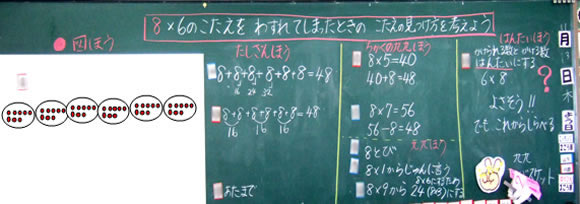 8×6のこたえを わすれてしまったときの こたえの見つけ方を考えよう
●図ほう
たしざんほう
8+8+8+8+8+8=48
16 24 32
8+8+8+8+8+8=48
16 16 16
あたまで
ちかくの九九ほう
8×5=40
40+8=48
8×7=56
56-8=48
九九ほう
8とび
8×1からじゅんに言う
8×6にするため
8×9から24(8×3)にする
はんたいほう
かけられる数とかける数
はんたいにする
6×8
?
よさそう!!
でも、これからしらべる
月
日
木
よう日
九九